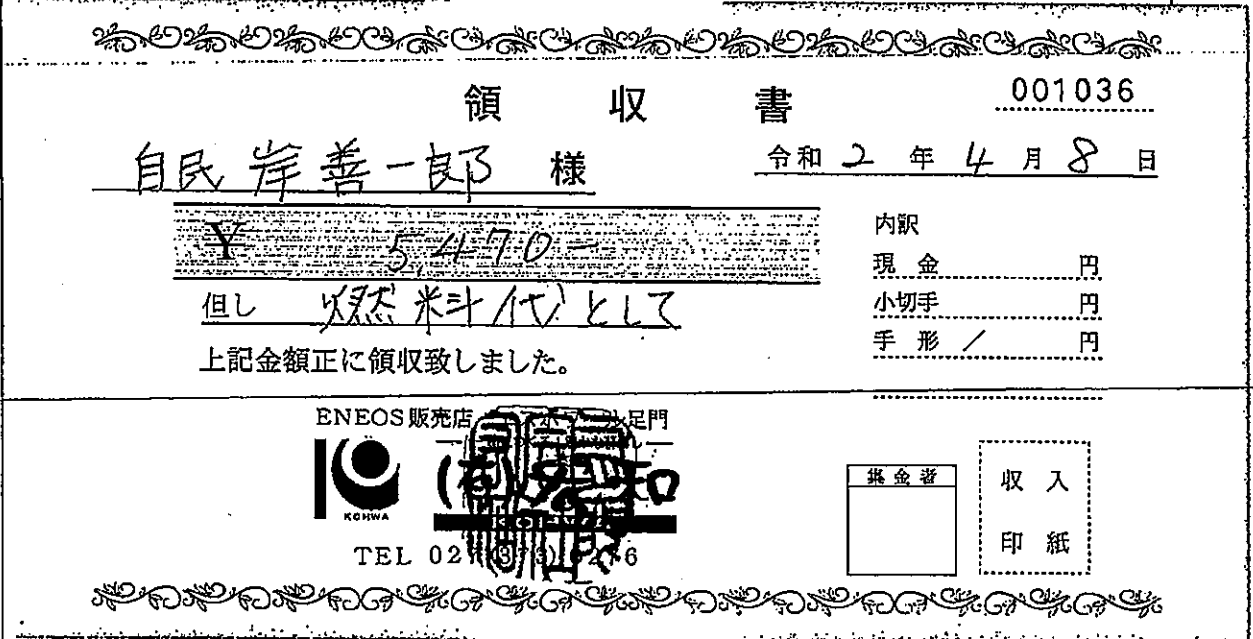 領 収 書
001036
自民 岸善一郎 様
令和 2 年 4 月 8 日
¥ 5,470-
但し 燃料代として
上記金額正に領収致しました。
内訳
現 金 円
小切手 円
手 形 / 円
ENEOS販売店 足門
KOHWA
(有)
TEL 02
集金者
収 入
印 紙